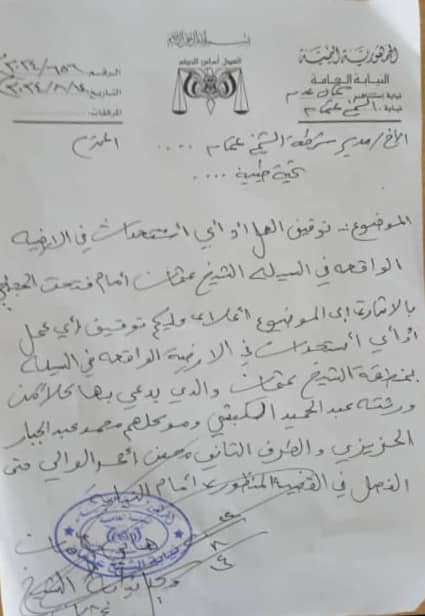 بسم الله الرحمن الرحيم
الجمهورية اليمنية
النيابة العامة
نيابة استئناف شمال عدن
نيابة: الشيخ عثمان
العدل أساس الحكم
الرقم: ٢٠٢٤/٦٥٦
التاريخ: ٢٠٢٤/٨/
المرفقات:
الأخ/ مدير شرطة الشيخ عثمان .... المحترم
تحية طيبة ....
الموضوع:- توقيف العمل او أي استحداث في الارضية
الواقعه في السيله الشيخ عثمان امام
بالاشارة الى الموضوع أعلاه عليكم توقيف أي عمل
أو أي استحداث في الارضية الواقعه في السيلة
بمنطقة الشيخ عثمان والذي يدعي بها كلا من
ورثته عبدالحميد وموكلهم محمد عبدالجبار
الحزيزي والطرف الثاني الوالي حتى
الفصل في القضية المنظورة امام النيابة
وكيل نيابة الشيخ